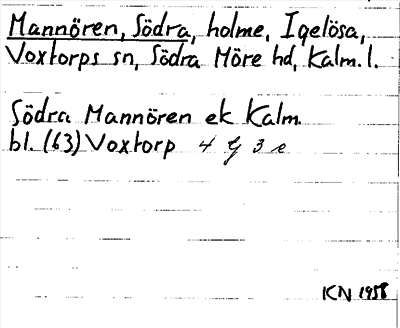 Mannören, Södra, holme, Igelösa,
Voxtorps sn, Södra Möre hd, Kalm. l.
Södra Mannören ek Kalm.
bl. (63) Voxtorp 4 G 3 e
KN 1958